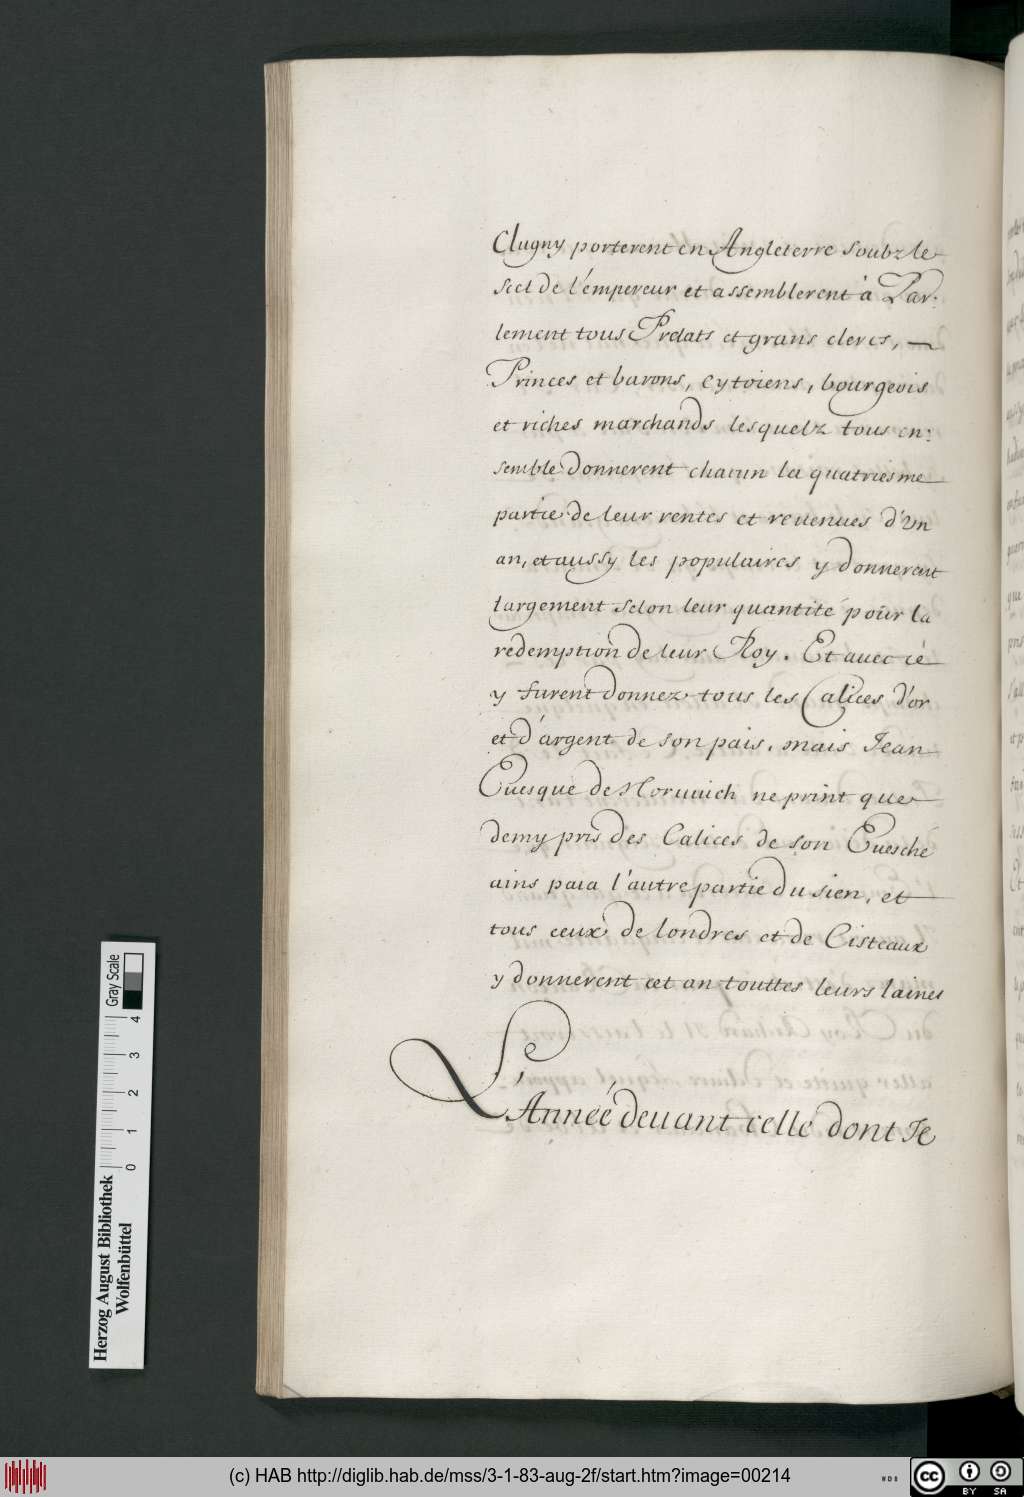 Clugny porterent en Angleterre soubz le
seel de l'empereur et assemblerent à Par:
lement tous Prelats et grans clercs, —
Princes et barons, cytoiens, bourgeois
et riches marchands lesquelz tous en:
semble donnerent chacun la quatriesme
partie de leur rentes et reuenues d'un
an, et aussy les populaires y donnerent
largement selon leur quantité pour la
redemption de leur Roy. Et auec cé
y furent donnez tous les Calices d'or
et d'argent de son pais. mais Jean
Euesque de Noruuich ne print que
demy pris des Calices de son Euesché
ains paia l'autre partie du sien, et
tous ceux de londres et de Cisteaux
y donnerent cet an touttes leurs laines
L'Année deuant celle dont Je
Herzog August Bibliothek
Wolfenbüttel
0 1 2 3 4
Gray Scale
(c) HAB http://diglib.hab.de/mss/3-1-83-aug-2f/start.htm?image=00214
WDB
cc BY SA